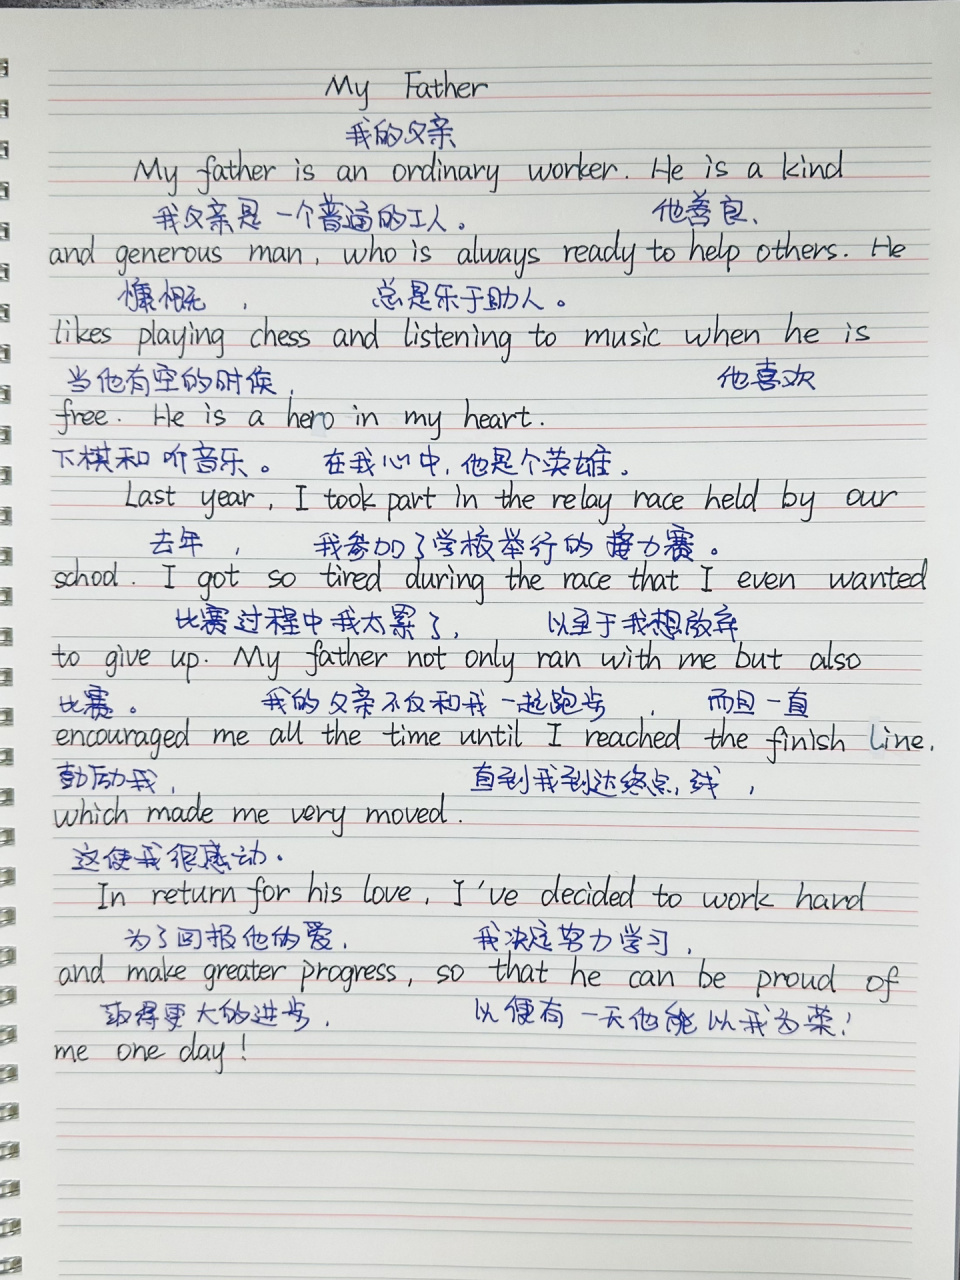 My Father
我的父亲
My father is an ordinary worker. He is a kind
我父亲是一个普通的工人。 他善良、
and generous man, who is always ready to help others. He
慷慨， 总是乐于助人。
likes playing chess and listening to music when he is
当他有空的时候， 他喜欢
free. He is a hero in my heart.
下棋和听音乐。 在我心中，他是个英雄。
Last year, I took part in the relay race held by our
去年， 我参加了学校举行的接力赛。
school. I got so tired during the race that I even wanted
比赛过程中我太累了， 以至于我想放弃
to give up. My father not only ran with me but also
比赛。 我的父亲不仅和我一起跑步， 而且一直
encouraged me all the time until I reached the finish line,
鼓励我， 直到我到达终点线，
which made me very moved.
这使我很感动。
In return for his love, I've decided to work hard
为了回报他的爱， 我决定努力学习，
and make greater progress, so that he can be proud of
取得更大的进步， 以便有一天他能以我为荣！
me one day!